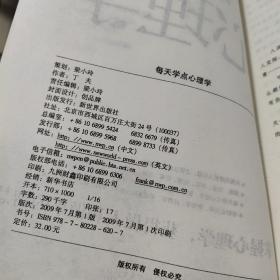 心理学
每天学点心理学
策划：梁小玲
作者：丁夫
责任编辑：梁小玲
封面设计：创品牌
出版发行：新世界出版社
社址：北京市西城区百万庄大街24号（100037）
总编室：+86 10 6899 5424　6832 6679（传真）
发行部：+86 10 6899 5968　6899 8733（传真）
网址：http://www.nwp.cn（中文）
http://www.newworld-press.com（英文）
电子信箱：nwpcn@public.bta.net.cn
版权部：+86 10 6899 6306　frank@nwp.com.cn
印刷：九洲财鑫印刷有限公司
经销：新华书店
开本：710×1000　1/16
字数：290千字　印张：17
版次：2009年7月第1版　2009年7月第1次印刷
书号：ISBN 978-7-80228-620-7
定价：32.00元
版权所有　侵权必究